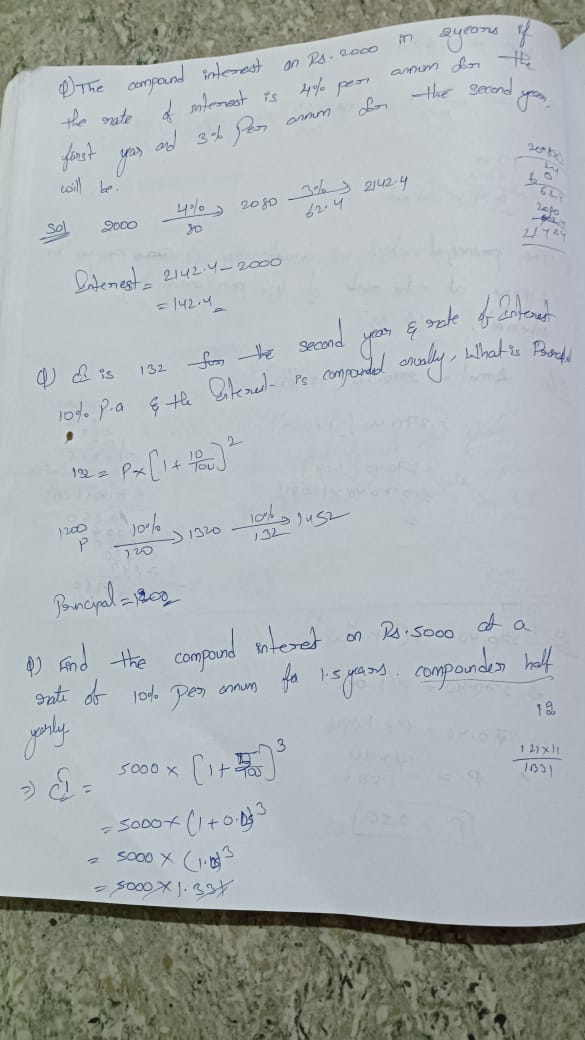 Q) The compound interest on Rs. 2000 in 2years if
the rate of interest is 4% per annum for the
first year and 3% Per annum for the second year,
will be.
Sol 2000 4%/80 → 2080 3%/62.4 → 2142.4
Interest = 2142.4 - 2000
= 142.4
Q) CI is 132 for the second year & rate of Interest
10% P.a & the Interest is compounded anually, What is
132 = P x [1 + 10/100]^2
1200
P 10%/120 → 1320 10%/132 → 1452
Principal = 1200
Q) Find the compound interest on Rs. 5000 at a
rate of 10% Per annum for 1.5 years. compounded half
yearly
12
121 x 11
1331
⇒ CI = 5000 x [1 + /100]^3
= 5000 x (1 + 0.05)^3
= 5000 x (1.05)^3
= 5000 x 1.331